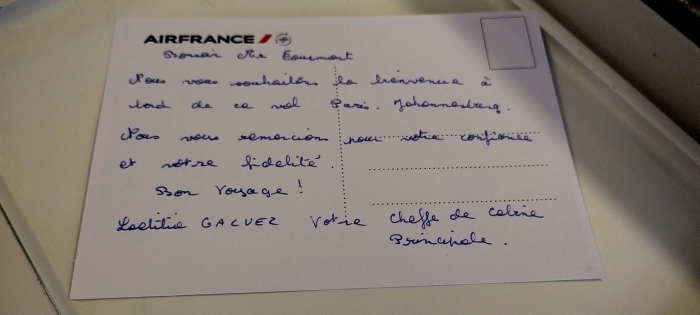 AIRFRANCE
Bonsoir Mr
Nous vous souhaitons la bienvenue à
bord de ce vol Paris. Johannesberg.
Nous vous remercions pour votre confiance
et votre fidélité.
Bon voyage !
Laetitia GALVEZ Votre Cheffe de Cabine
Principale.